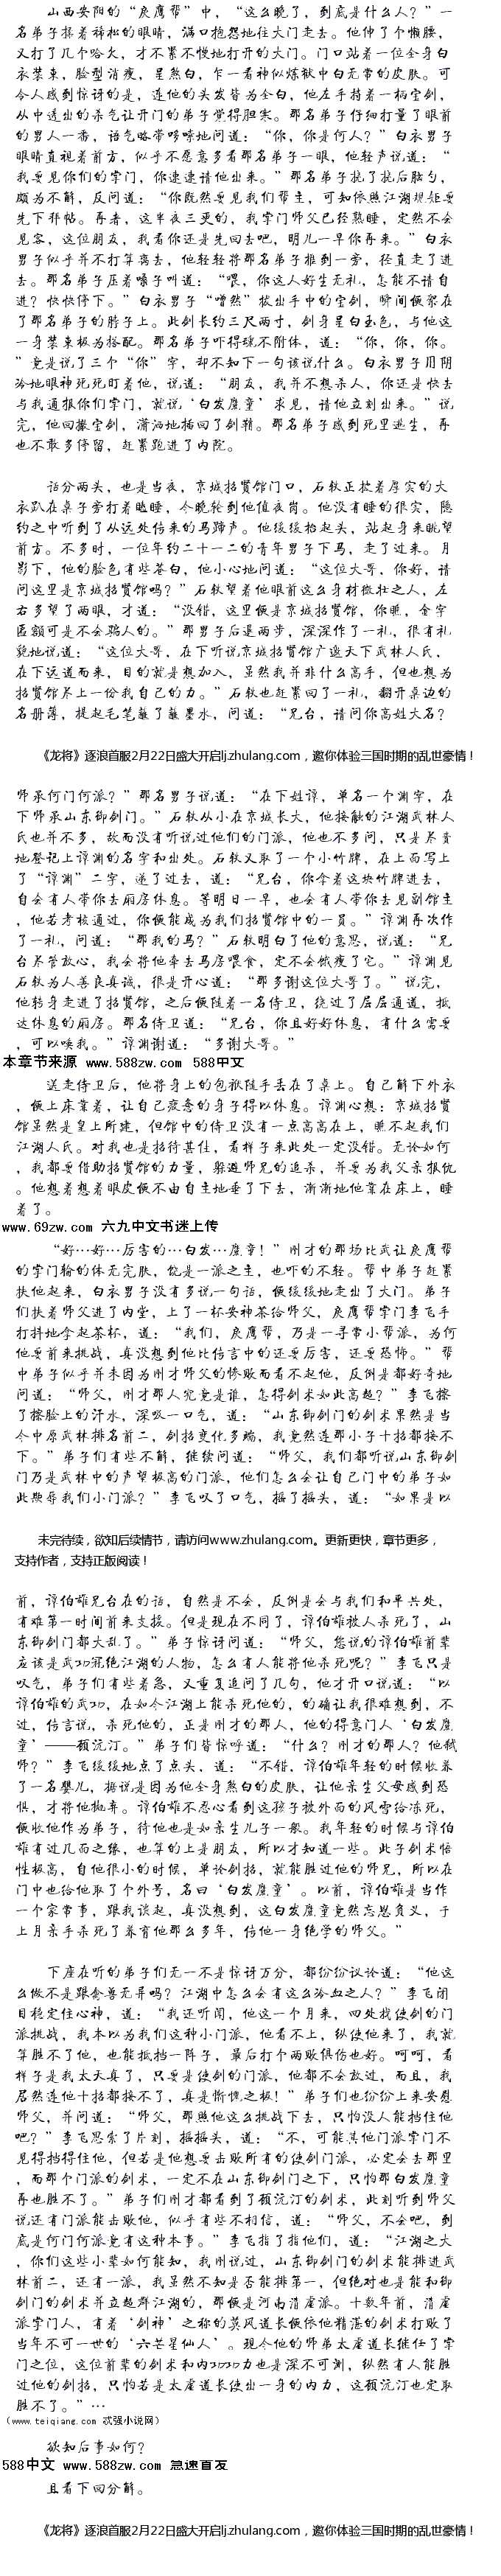 山西安阳的“戾鹰帮”中，“这么晚了，到底是什么人？”一
名弟子揉着惺忪的眼睛，满口抱怨地往大门走去。他伸了个懒腰，
又打了几个哈欠，才不紧不慢地打开的大门。门口站着一位全身白
衣装束，脸型消瘦，呈煞白，乍一看神似炼狱中白无常的皮肤。可
令人感到惊讶的是，连他的头发皆为全白，他左手持着一柄宝剑，
从中透出的杀气让开门的弟子觉得胆寒。那名弟子仔细打量了眼前
的男人一番，语气略带哆嗦地问道：“你，你是何人？”白衣男子
眼睛直视着前方，似乎不愿意多看那名弟子一眼，他轻声说道：“
我要见你们的掌门，你速速请他出来。”那名弟子挠了挠后脑勺，
颇为不解，反问道：“你既然要见我们帮主，可知依照江湖规矩要
先下拜帖。再者，这半夜三更的，我掌门师父已经熟睡，定然不会
见客，这位朋友，我看你还是先回去吧，明儿一早你再来。”白衣
男子似乎并不打算离去，他轻轻将那名弟子推到一旁，径直走了进
去。那名弟子压着嗓子叫道：“喂，你这人好生无礼，怎能不请自
进？快快停下。”白衣男子“噌然”拔出手中的宝剑，瞬间便架在
了那名弟子的脖子上。此剑长约三尺两寸，剑身呈白玉色，与他这
一身装束极为搭配。那名弟子吓得魂不附体，道：“你，你，你。
”竟是说了三个“你”字，却不知下一句该说什么。白衣男子用阴
冷地眼神死死盯着他，说道：“朋友，我并不想杀人，你还是快去
与我通报你们掌门，就说‘白发魔童’求见，请他立刻出来。”说
完，他回撤宝剑，潇洒地插回了剑鞘。那名弟子感到死里逃生，再
也不敢多停留，赶紧跑进了内院。
话分两头，也是当夜，京城招贤馆门口，石轶正披着厚实的大
衣趴在桌子旁打着瞌睡，今晚轮到他值夜岗。他没有睡的很实，隐
约之中听到了从远处传来的马蹄声。他缓缓抬起头，站起身来眺望
前方。不多时，一位年约二十一二的青年男子下马，走了过来。月
影下，他的脸色有些苍白，他小心地问道：“这位大哥，你好，请
问这里是京城招贤馆吗？”石轶望着他眼前这么身材微壮之人，左
右多望了两眼，才道：“没错，这里便是京城招贤馆，你瞧，金字
匾额可是不会骗人的。”那男子后退两步，深深作了一礼，很有礼
貌地说道：“这位大哥，在下听说京城招贤馆广邀天下武林人氏，
在下远道而来，目的就是想加入，虽然我并非什么高手，但也想为
招贤馆尽上一份我自己的力。”石轶也赶紧回了一礼，翻开桌边的
名册薄，提起毛笔蘸了蘸墨水，问道：“兄台，请问你高姓大名？
《龙将》逐浪首服2月22日盛大开启lj.zhulang.com，邀你体验三国时期的乱世豪情！
师承何门何派？”那名男子说道：“在下姓谭，单名一个渊字，在
下师承山东御剑门。”石轶从小在京城长大，他接触的江湖武林人
氏也并不多，故而没有听说过他们的门派，他也不多问，只是尽责
地登记上谭渊的名字和出处。石轶又取了一个小竹牌，在上面写上
了“谭渊”二字，递了过去，道：“兄台，你拿着这块竹牌进去，
自会有人带你去厢房休息。等明日一早，也会有人带你去见副馆主
，他若考核通过，你便能成为我们招贤馆中的一员。”谭渊再次作
了一礼，问道：“那我的马？”石轶明白了他的意思，说道：“兄
台尽管放心，我会将他牵去马房喂食，定不会饿瘦了它。”谭渊见
石轶为人善良真诚，很是开心道：“那多谢这位大哥了。”说完，
他转身走进了招贤馆，之后便随着一名侍卫，绕过了层层通道，抵
达休息的厢房。那名侍卫道：“兄台，你且好好休息，有什么需要
，可以唤我。”谭渊谢道：“多谢大哥。”
本章节来源 www.588zw.com 588中文
送走侍卫后，他将身上的包袱随手丢在了桌上。自己解下外衣
，便上床靠着，让自己疲惫的身子得以休息。谭渊心想：京城招贤
馆虽然是皇上所建，但馆中的侍卫没有一点高高在上，瞧不起我们
江湖人氏。对我也是招待甚佳，看样子来此处一定没错。无论如何
，我都要借助招贤馆的力量，躲避师兄的追杀，并要为我父亲报仇
。他想着想着眼皮便不由自主地垂了下去，渐渐地他靠在床上，睡
着了。
www.69zw.com 六九中文书迷上传
“好…好…厉害的…白发…魔童！”刚才的那场比武让戾鹰帮
的掌门输的体无完肤，饶是一派之主，也吓的不轻。帮中弟子赶紧
扶他起来，白衣男子没有多说一句话，便缓缓地走出了大门。弟子
们扶着师父进了内堂，上了一杯安神茶给师父，戾鹰帮掌门李飞手
打抖地拿起茶杯，道：“我们，戾鹰帮，乃是一寻常小帮派，为何
他要前来挑战，真没想到他比传言中的还要厉害，还要恐怖。”帮
中弟子似乎并未因为刚才师父的惨败而看不起他，反倒是都好奇地
问道：“师父，刚才那人究竟是谁，怎得剑术如此高超？”李飞擦
了擦脸上的汗水，深吸一口气，道：“山东御剑门的剑术果然是当
今中原武林排名前二，剑招变化多端，我竟然连那小子十招都接不
下。”弟子们有些不解，继续问道：“师父，我们都听说山东御剑
门乃是武林中的声望极高的门派，他们怎么会让自己门中的弟子如
此欺辱我们小门派？”李飞叹了口气，摇了摇头，道：“如果是以
未完待续，欲知后续情节，请访问www.zhulang.com。更新更快，章节更多，
支持作者，支持正版阅读！
前，谭伯雄兄台在的话，自然是不会，反倒是会与我们和平共处，
有难第一时间前来支援。但是现在不同了，谭伯雄被人杀死了，山
东御剑门都大乱了。”弟子惊讶问道：“师父，您说的谭伯雄前辈
应该是武功冠绝江湖的人物，怎么有人能将他杀死呢？”李飞只是
叹气，弟子们有些着急，又重复追问了几句，他才开口说道：“以
谭伯雄的武功，在如今江湖上能杀死他的，的确让我很难想到，不
过，传言说，杀死他的，正是刚才的那人，他的得意门人‘白发魔
童’——顾沅汀。”弟子们皆惊呼道：“什么？刚才的那人？他弑
师？”李飞缓缓地点了点头，道：“不错，谭伯雄年轻的时候收养
了一名婴儿，据说是因为他全身煞白的皮肤，让他亲生父母感到恐
惧，才将他抛弃。谭伯雄不忍心看到这孩子被外面的风雪给冻死，
便收他作为弟子，待他也是如亲生儿子一般。我年轻的时候与谭伯
雄有过几面之缘，也算的上是朋友，所以才知道一些。此子剑术悟
性极高，自他很小的时候，单论剑招，就能胜过他的师兄，所以在
门中也给他取了个外号，名曰‘白发魔童’。以前，谭伯雄是当作
一个家常事，跟我谈起，真没想到，这白发魔童竟然忘恩负义，于
上月亲手杀死了养育他那么多年，传他一身绝学的师父。”
下座在听的弟子们无一不是惊讶万分，都纷纷议论道：“他这
么做不是跟禽兽无异吗？江湖中怎么会有这么冷血之人？”李飞闭
目稳定住心神，道：“我还听闻，他这一个月来，四处找使剑的门
派挑战，我本以为我们这种小门派，他看不上，纵使他来了，我就
算胜不了他，也能抵挡一阵子，最后打个两败俱伤也好。呵呵，看
样子是我太天真了，只要是使剑的门派，他都不会放过，而且，我
居然连他十招都接不了，真是惭愧之极！”弟子们也纷纷上来安慰
师父，并问道：“师父，那照他这么挑战下去，只怕没人能挡住他
吧？”李飞思索了片刻，摇摇头，道：“不，可能其他门派掌门不
见得挡得住他，但若是他想要击败所有的使剑门派，必定会去那里
，而那个门派的剑术，一定不在山东御剑门之下，只怕那白发魔童
再也胜不了。”弟子们刚才都看到了顾沅汀的剑术，此刻听到师父
说还有门派能击败他，似乎有些不相信，道：“师父，不会吧，到
底是何门何派竟有这种本事。”李飞指了指他们，道：“江湖之大
，你们这些小辈如何能知，我刚说过，山东御剑门的剑术能排进武
林前二，还有一派，我虽然不知是否能排第一，但绝对也是能和御
剑门的剑术并立超群江湖的，那便是河南清虚派。十数年前，清虚
派掌门人，有着‘剑神’之称的莫风道长便依他精湛的剑术打败了
当年不可一世的‘六芒星仙人’。现今他的师弟太虚道长继任了掌
门之位，这位前辈的剑术和内功功力也是深不可测，纵然有人能胜
过他的剑招，只怕若是太虚道长使出一身的内力，这顾沅汀也定取
胜不了。”…
（www.teiqiang.com 忒强小说网）
欲知后事如何？
588中文 www.588zw.com 急速首发
且看下回分解。
《龙将》逐浪首服2月22日盛大开启lj.zhulang.com，邀你体验三国时期的乱世豪情！